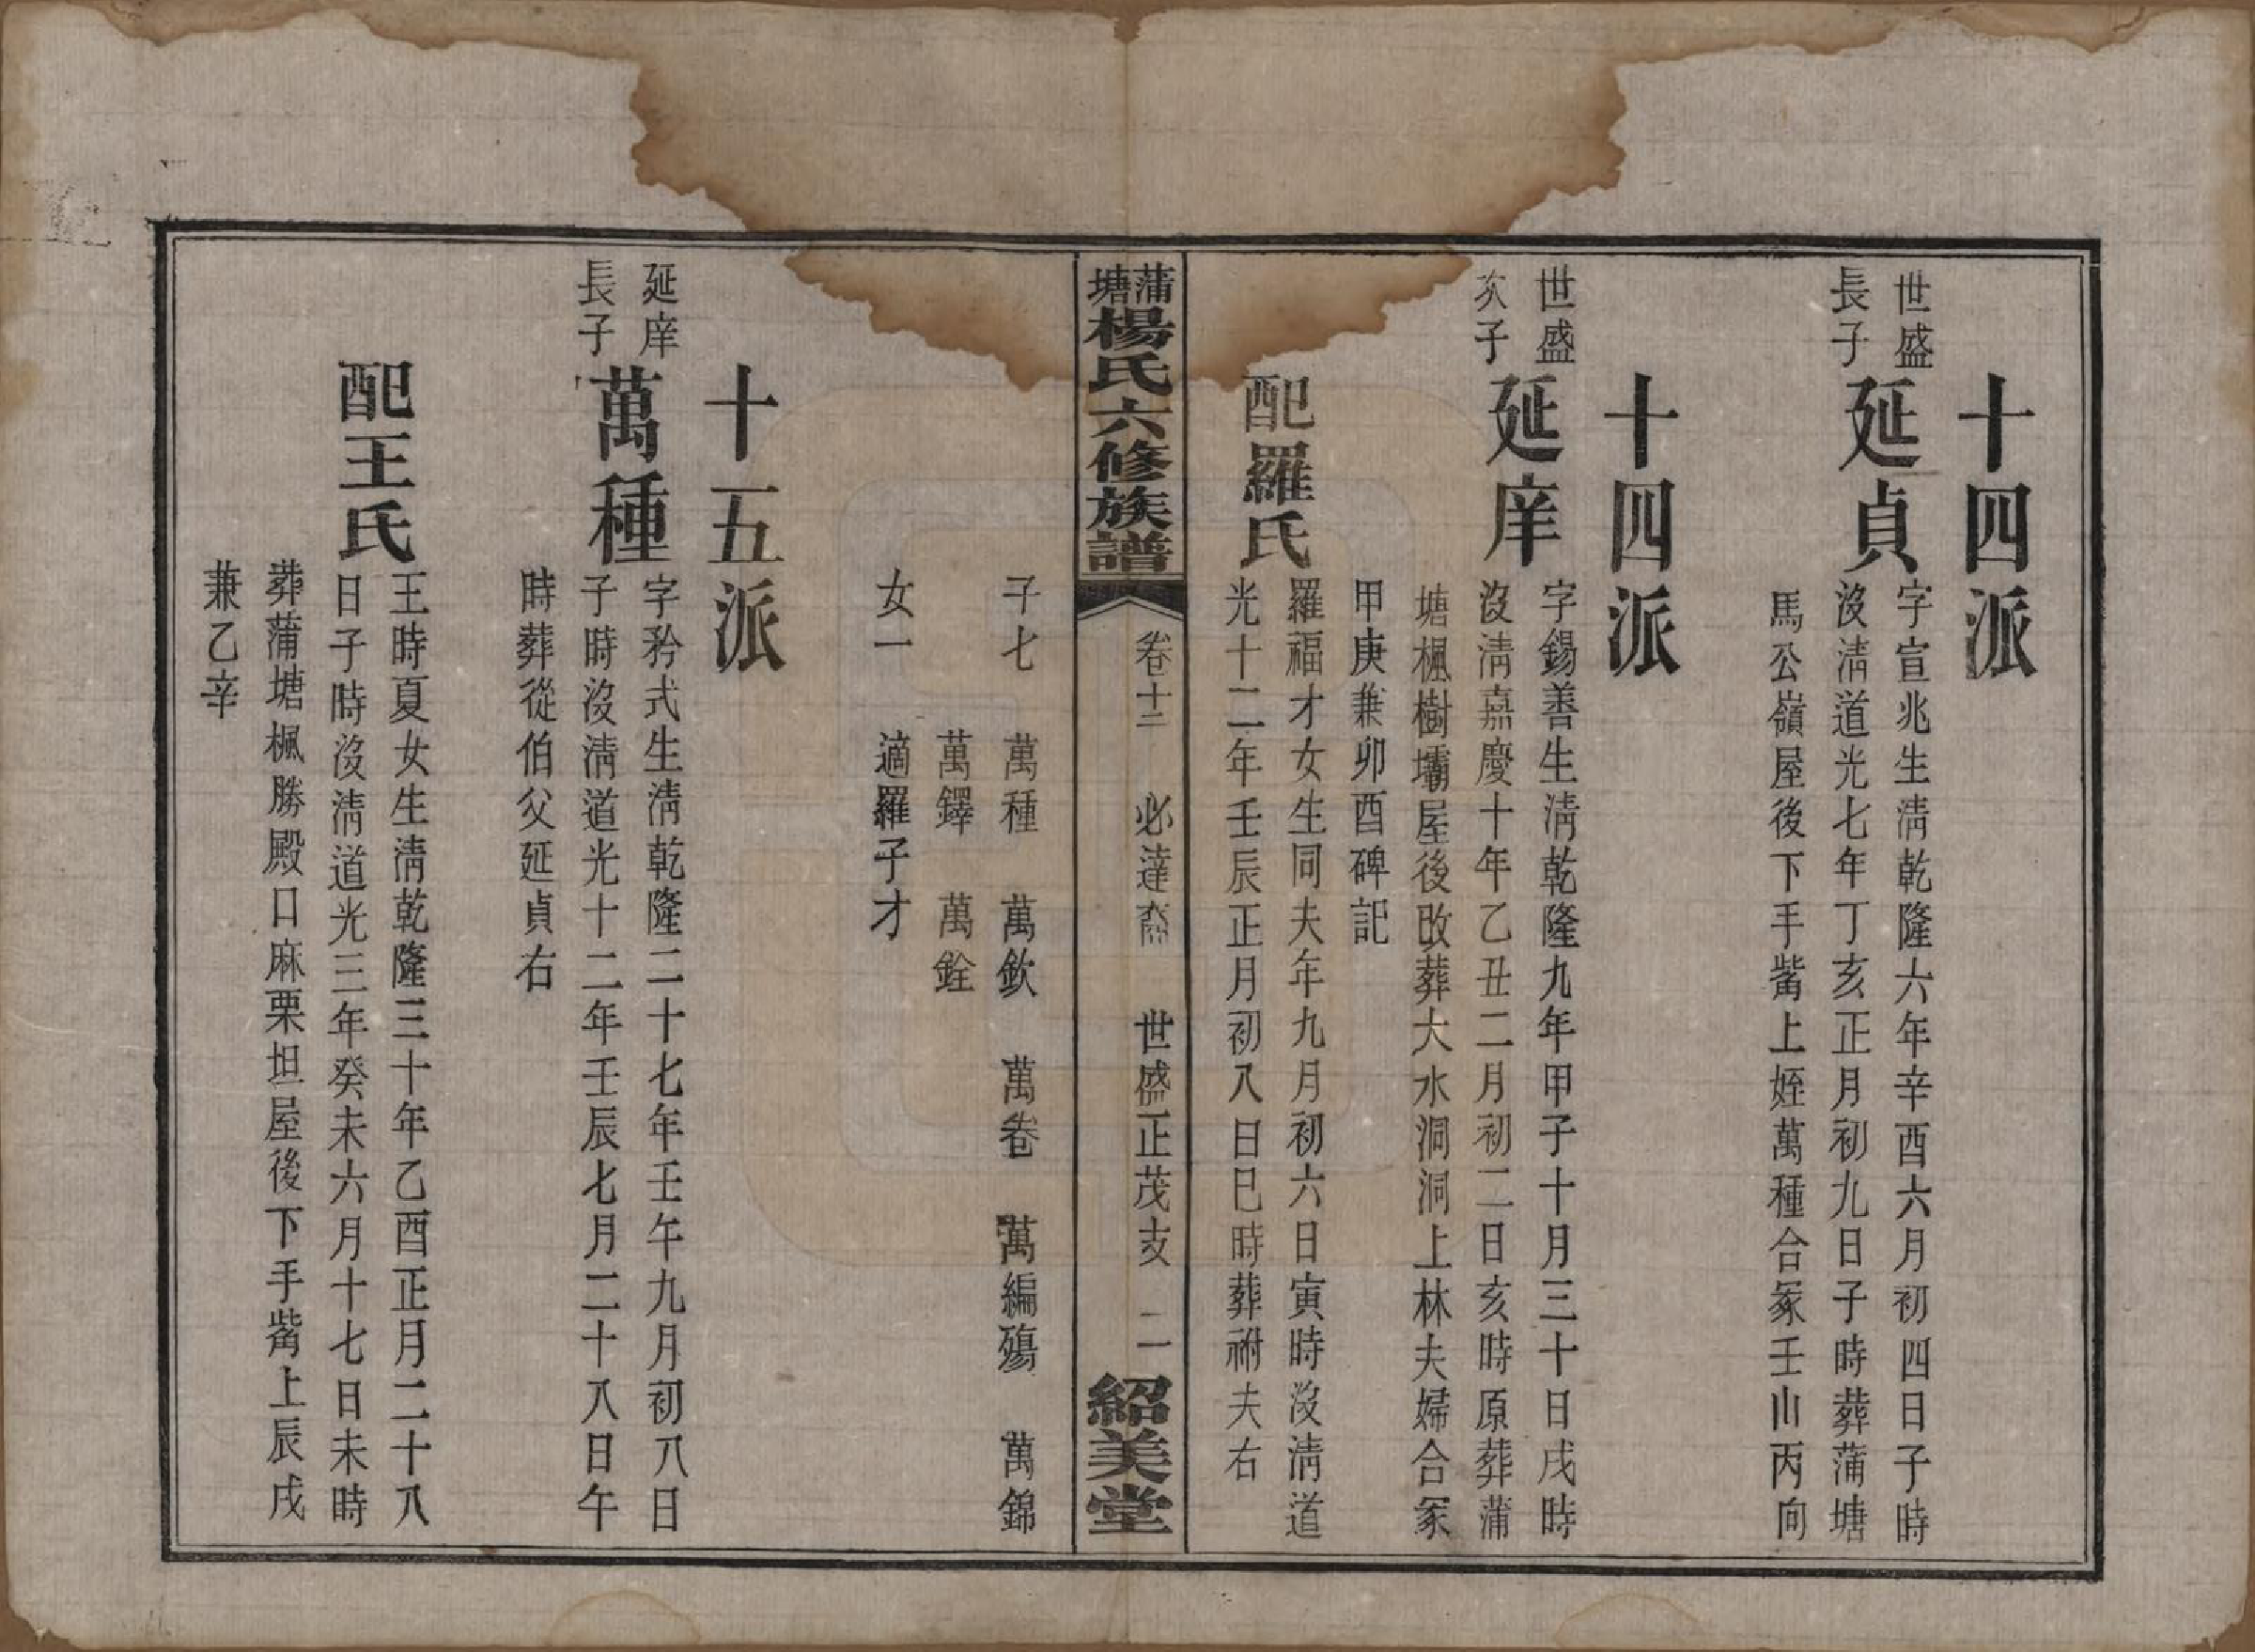 十四派
世盛長子
延貞
字宣兆生淸乾隆六年辛酉六月初四日子時
沒淸道光七年丁亥正月初九日子時葬蒲塘
馬公嶺屋後下手觜上姪萬種合冢壬山丙向
十四派
世盛次子
延庠
字錫善生淸乾隆九年甲子十月三十日戌時
沒淸嘉慶十年乙丑二月初二日亥時原葬蒲
塘楓樹壩屋後改葬大水洞洞上林夫婦合冢
甲庚兼卯酉碑記
配羅氏
羅福才女生同夫年九月初六日寅時沒淸道
光十二年壬辰正月初八日巳時葬祔夫右
蒲塘楊氏六修族譜
卷十二 必達裔 世盛正茂支 二
紹美堂
子七 萬種 萬欽 萬卷 萬編殤 萬錦
萬鐸 萬銓
女一 適羅子才
十五派
延庠長子
萬種
字矜式生淸乾隆二十七年壬午九月初八日
子時沒淸道光十二年壬辰七月二十八日午
時葬從伯父延貞右
配王氏
王時夏女生淸乾隆三十年乙酉正月二十八
日子時沒淸道光三年癸未六月十七日未時
葬蒲塘楓勝殿口麻栗坦屋後下手觜上辰戌
兼乙辛